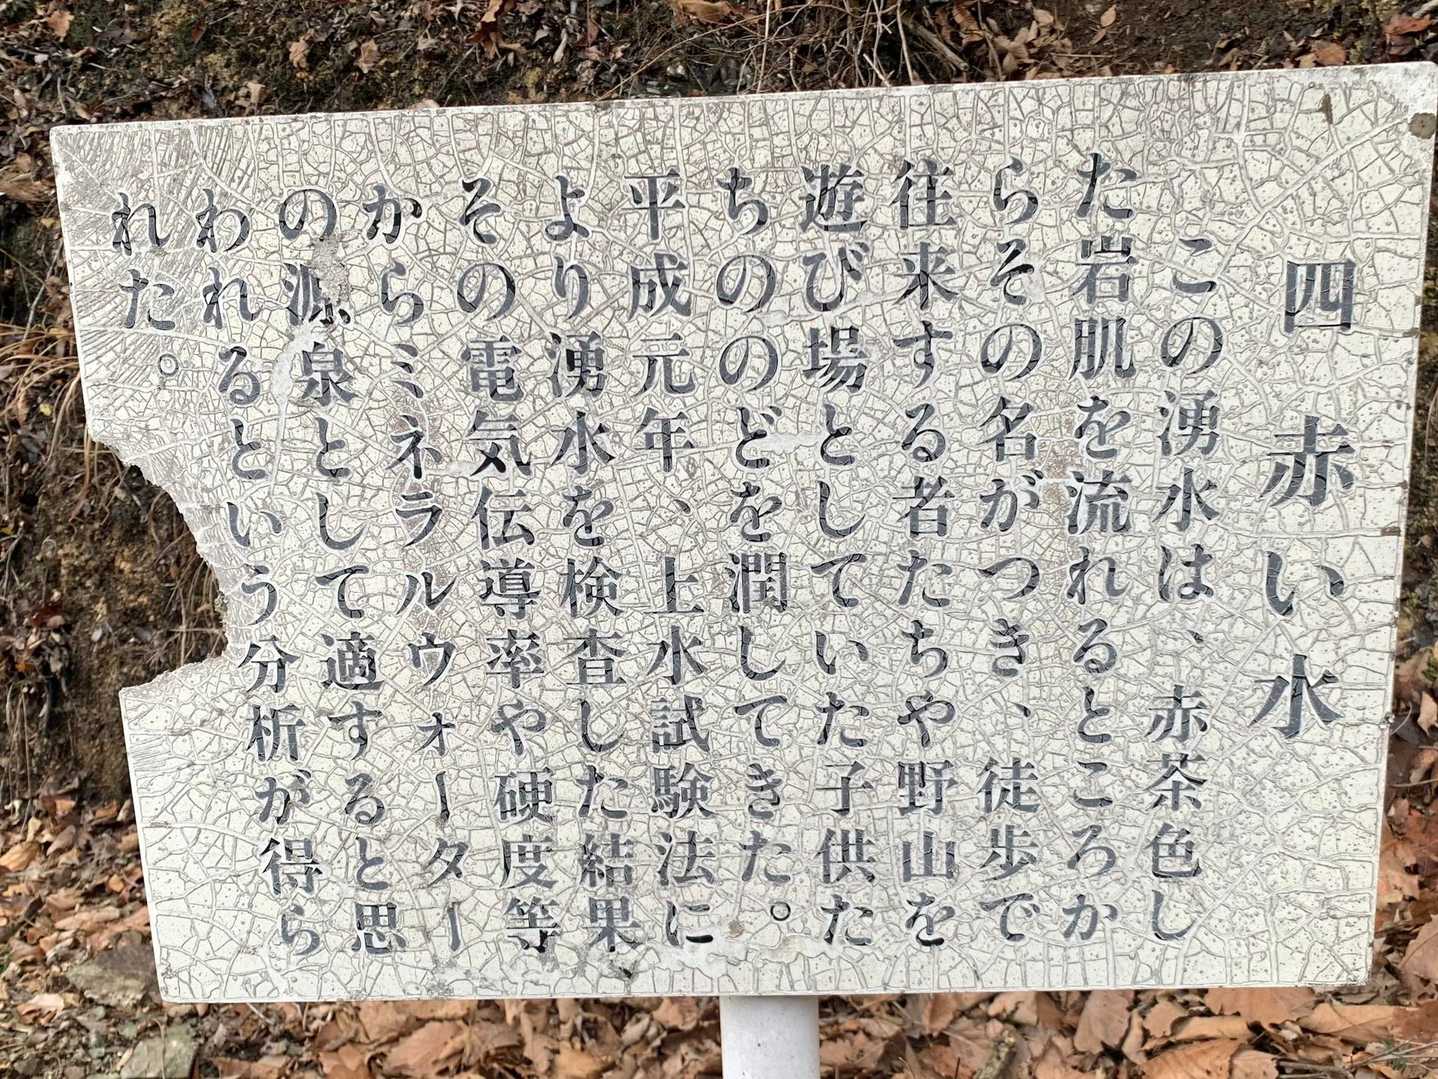 四 赤い水
この湧水は、赤茶色し
た岩肌を流れるところか
らその名がつき、徒歩で
往来する者たちや野山を
遊び場としていた子供た
ちののどを潤してきた。
平成元年、上水試験法に
より湧水を検査した結果
その電気伝導率や硬度等
からミネラルウォーター
の源泉として適すると思
われるという分析が得ら
れた。